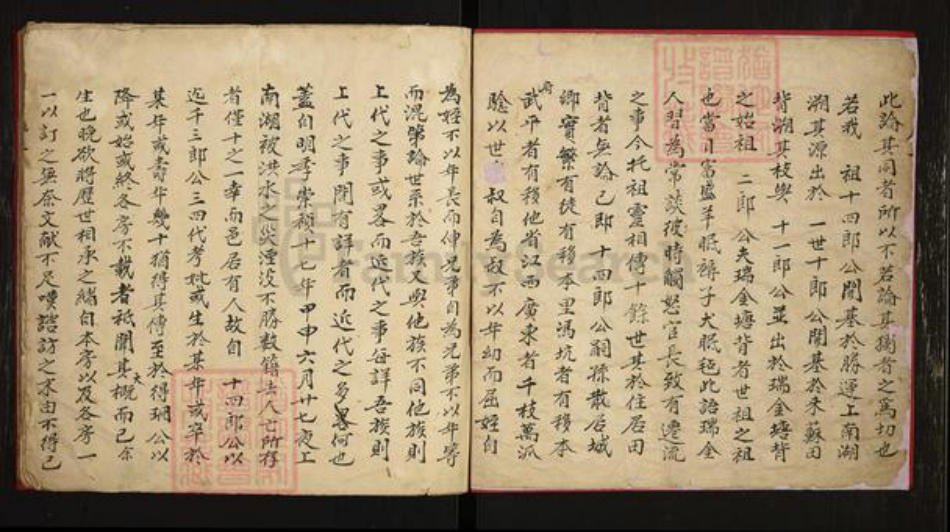 此論其同者所以不若論其獨者之為切也
若我 祖十四郎公開基於勝運上南湖
溯其源出於 一世十郎公開基於來蘇田
背溯其枝與 十一郎公並出於瑞金塘背
之始祖 二郎 公夫瑞金塘背者世祖之祖
也當日富盛羊眠褥子犬眠毡此語瑞金
人習為常談彼時觸怒官長致有遷流
之事今托祖靈相傳十餘世其於住居田
背者無論已即十四郎公嗣孫散居城
鄉寔繁有徒有移本里馮坑者有移本府
武平者有移他省江西廣東者千枝萬派
臉以世 叔自為叔不以年幼而屈姪自
為姪不以年長而伸兄弟自為兄弟不以年等
而混第論世系於吾族又與他族不同他族則
上代之事或畧而近代之事每詳吾族則
上代之事間有詳者而近代之多畧何也
蓋自明季崇禎十七年甲申六月廿七夜上
南湖被洪水之災湮沒不勝數籍去人亡所存
者僅十之一幸而邑居有人故自 十四郎公以
迄千三郎公三四代考妣或生於某年或卒於
某年或壽年幾十猶得其傳至於得瑚公以
降或始或終各房不載者祇聞其大概而已余
生也晚欲將歷世相承之緒自本房以及各房一
一以訂之無奈文献不足嘆諮訪之末由不得已